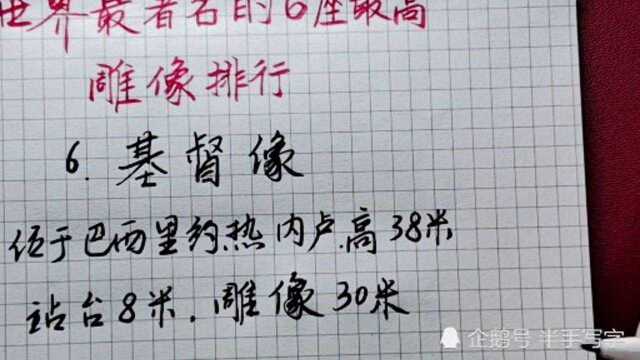 世界最著名的6座最高
雕像排行
6.基督像
位于巴西里约热内卢.高38米
站台8米.雕像30米
企鹅号 半手写字